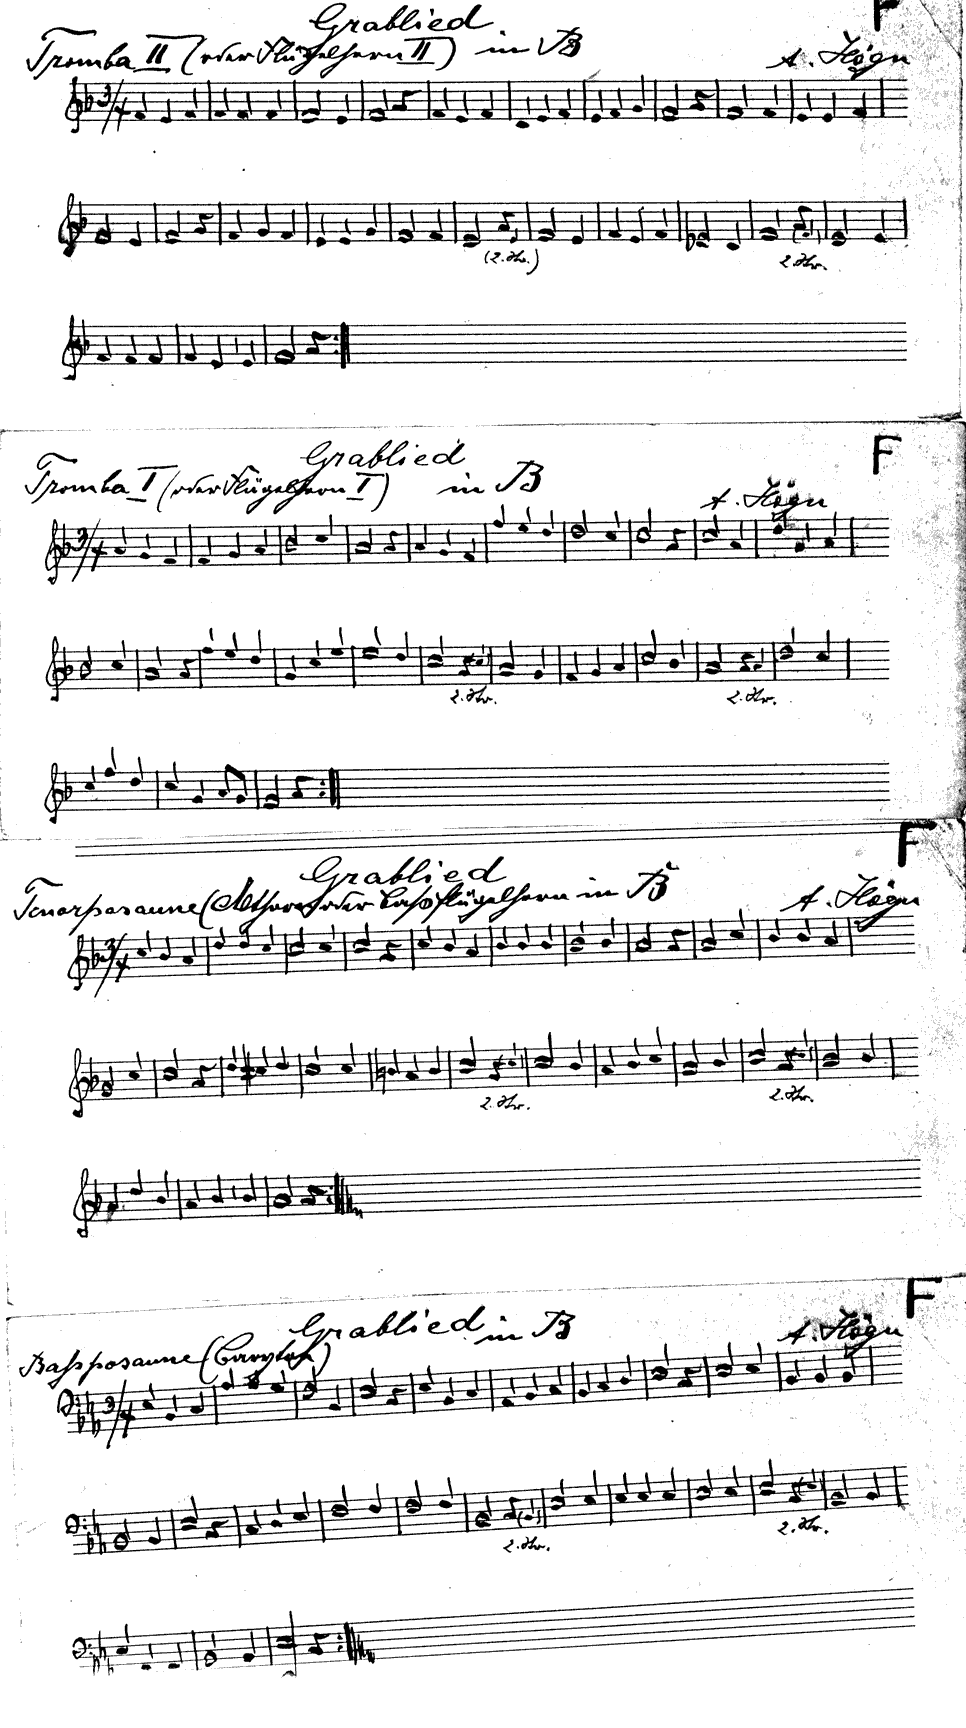 F
Grablied
Tromba II (oder Flügelhorn II) in B
A. Högn
3/4
(2. Str.)
2. Str.
F
Grablied
Tromba I (oder Flügelhorn I) in B
A. Högn
3/4
2. Str. 2. Str.
F
Grablied
Tenorposaune (Althorn oder Bassflügelhorn in B
A. Högn
3/4
2. Str. 2. Str.
F
Grablied in B
Bassposaune (Baryton)
A. Högn
3/4
2. Str. 2. Str.